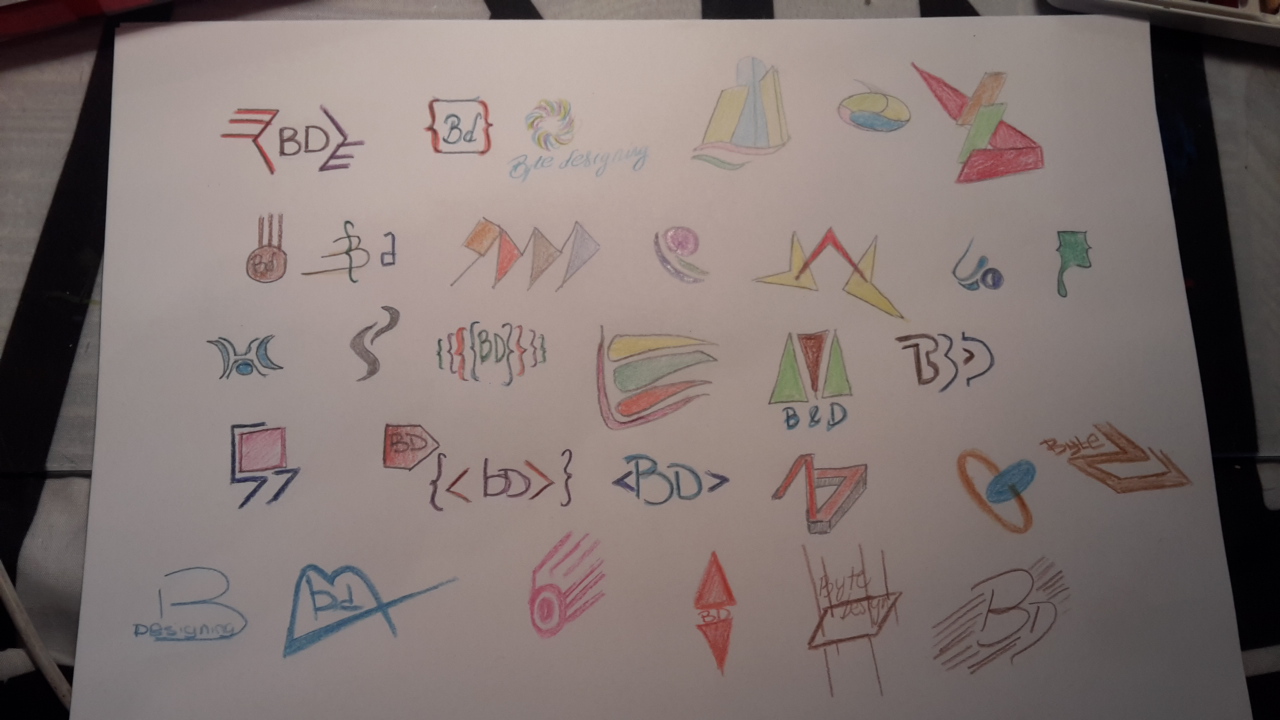 BD
{Bd}
Byte designing
Bd
Bd
{{{{BD}}}}
B & D
B}>
BD
{< bD>}
<BD>
Byte
B
Designing
Bd
BD
Byte
Design
BD